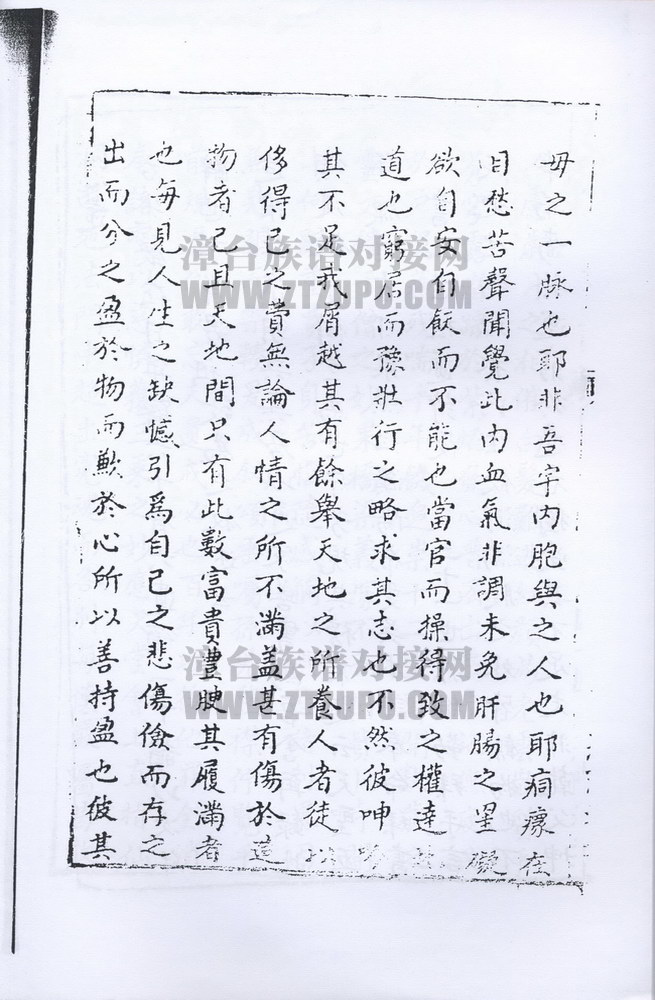 毋之一脉也耶非吾宇内胞與之人也耶痌瘝在
目愁苦聲聞覺此内血氣非調未免肝腸之呈礙
欲自安自飲而不能也當官而操得致之權達
道也窮居而豫壯行之略求其志也不然彼呻
其不足我屑越其有餘舉天地之所養人者徒
侈得已之費無論人情之所不滿盖甚有傷於造
物者已且天地間只有此數富貴豊腴其履滿者
也每見人生之缺憾引為自己之悲傷儉而存之
出而分之盈於物而歉於心所以善持盈也彼其
漳台族谱对接网
WWW.ZTZUPU.COM
漳台族谱对接网
WWW.ZTZUPU.COM